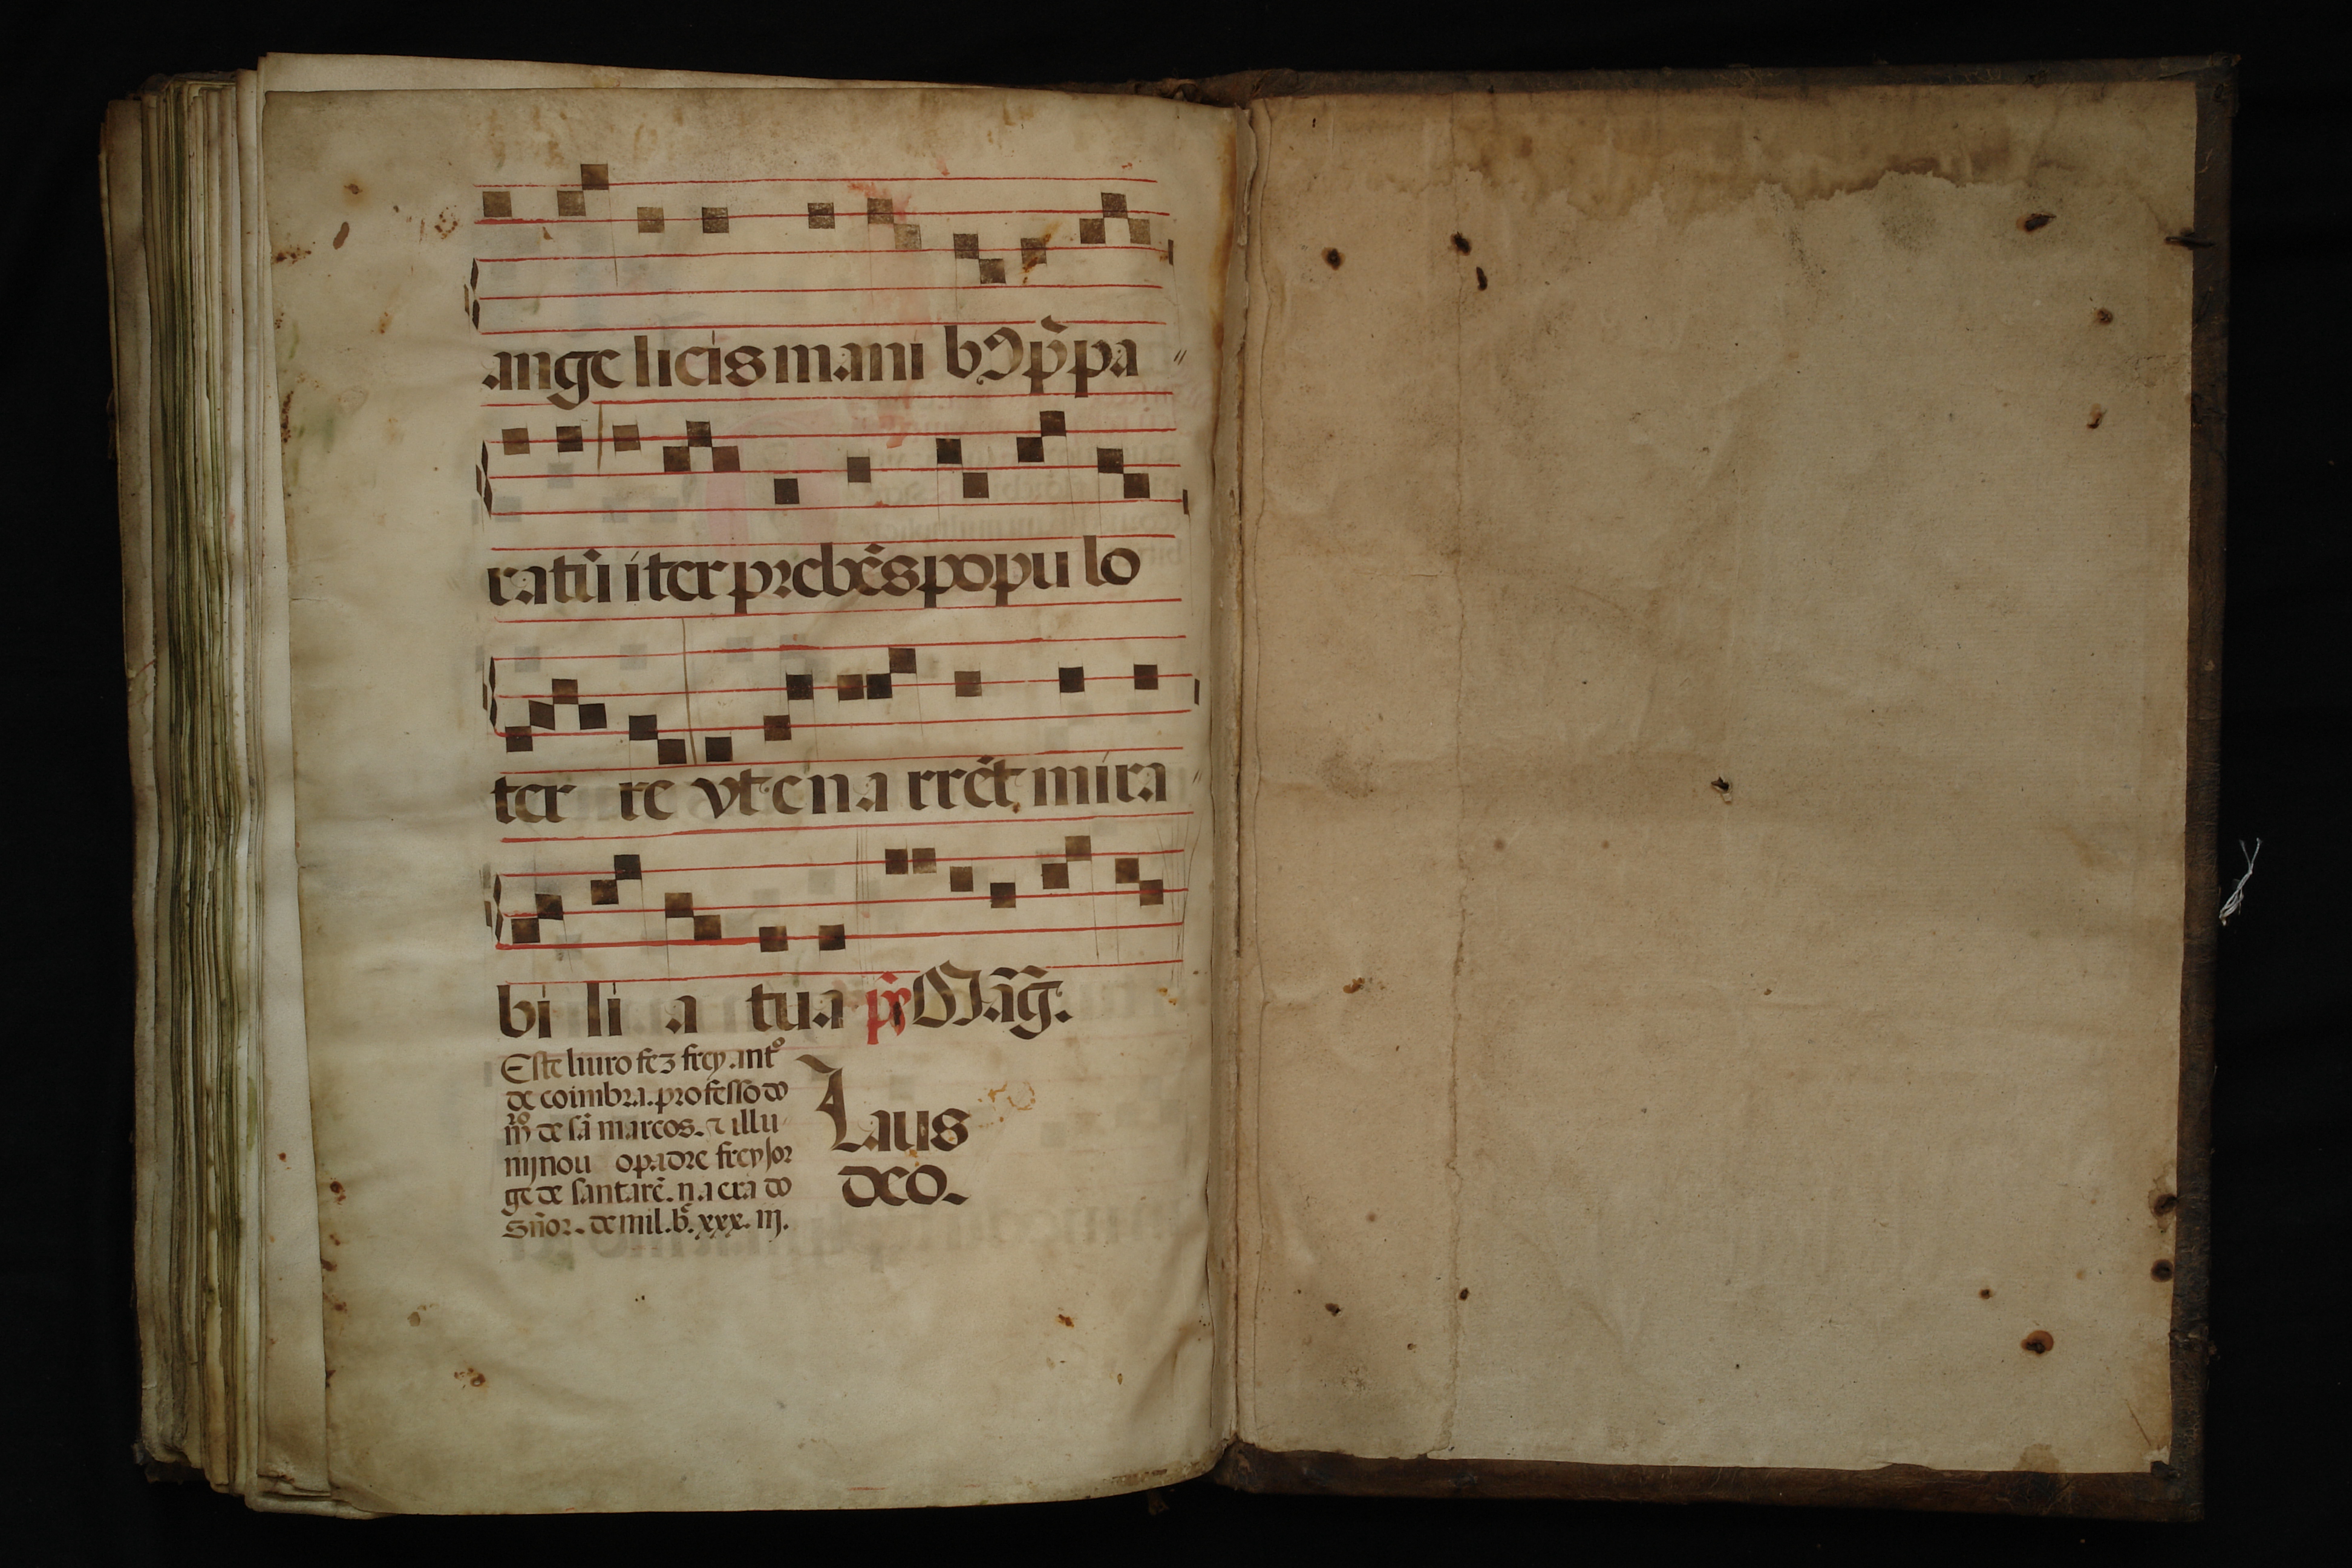 ange licis mani bꝰ p̄pa
ratū iter prebēs popu lo
ter re vt ena rrēt mira
bi li a tua p̄s Mag̃.
Este liuro fez frey antº
de coimbra. professo do
mrº de sã marcos. ⁊ illu
mjnou o padre frey Jor
ge de santarẽ. na era do
Sñor. de mil. bᶜ. xxx. iij.
Laus
deo.